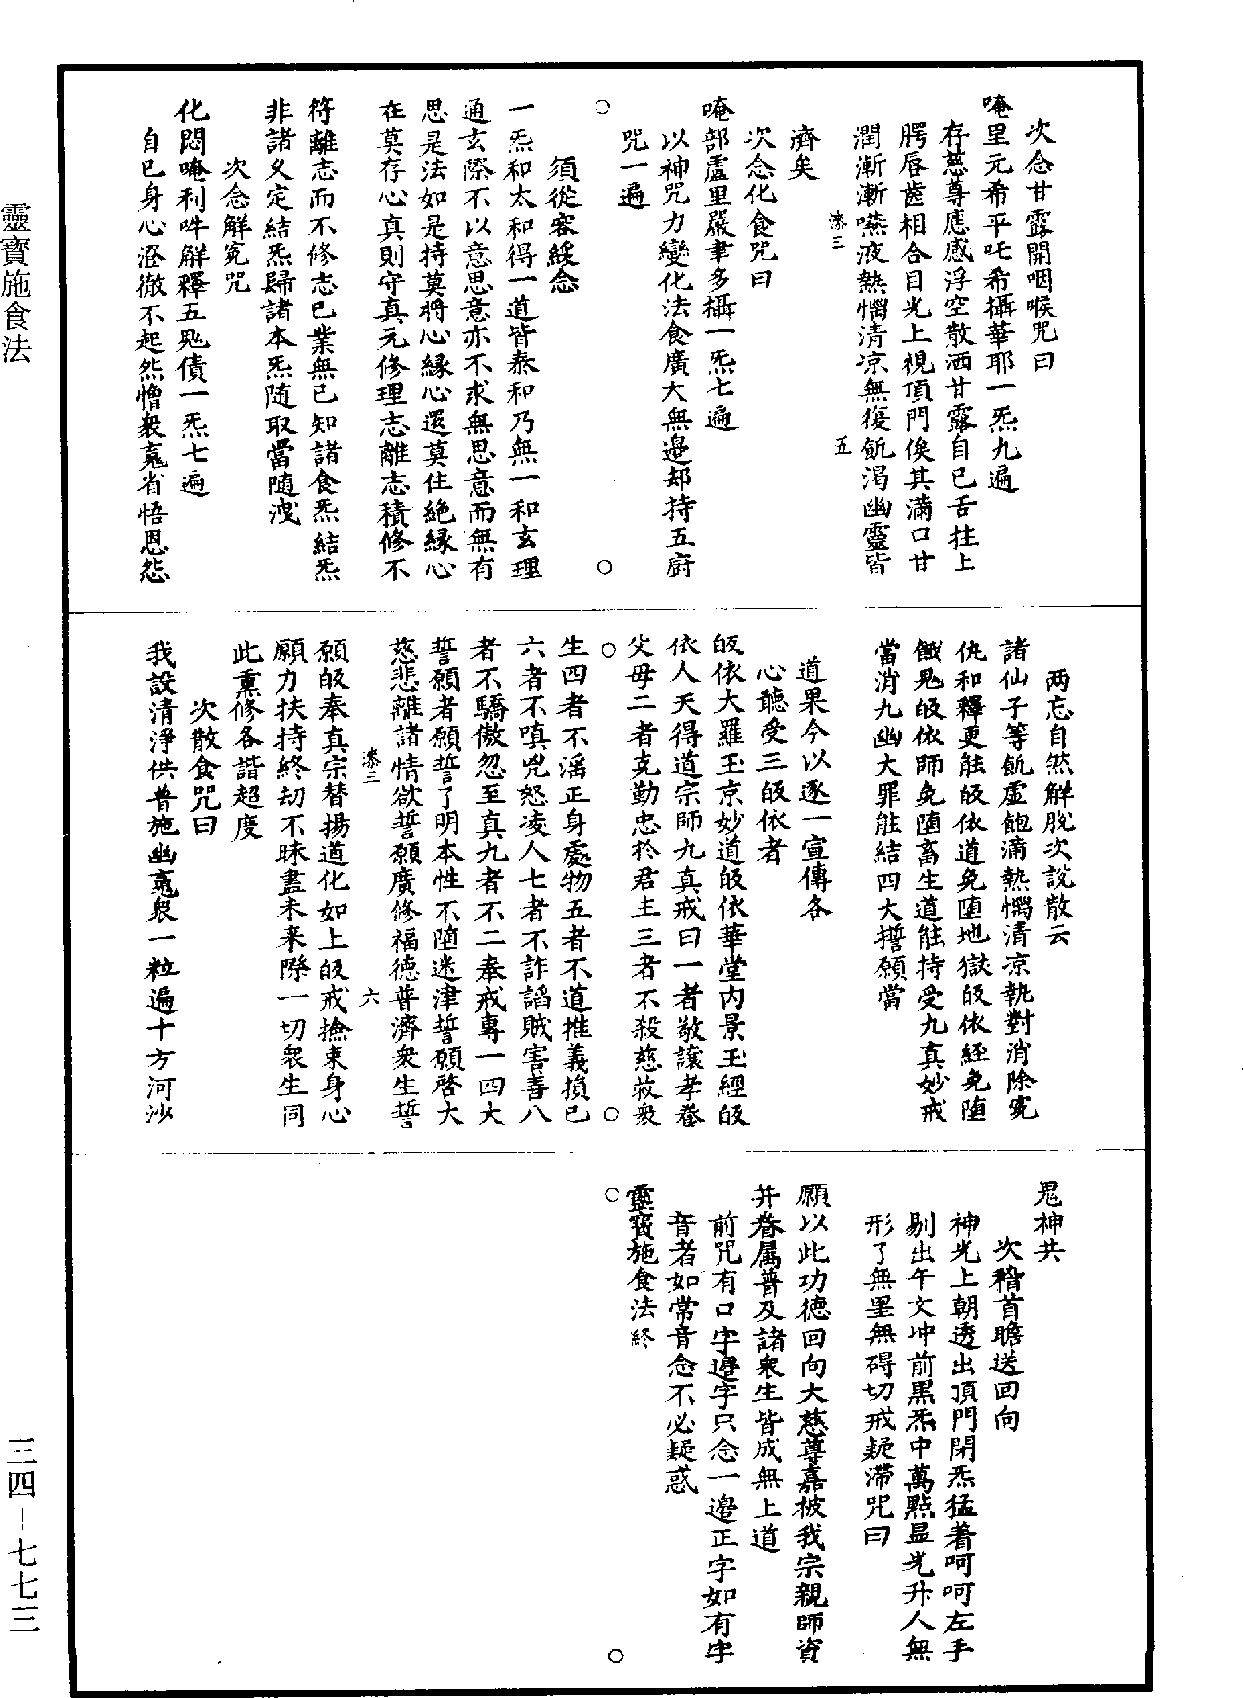 次念甘露開咽喉咒曰
唵里元希平吒希攝華耶一炁九遍
存慈尊應感浮空散洒甘露自己舌拄上
腭唇齒相合目光上視頂門俟其滿口甘
潤漸漸嚥液熱惱清凉無復飢渴幽靈皆
五
濟矣
次念化食咒曰
唵部盧里嚴聿多攝一炁七遍
以神咒力變化法食廣大無邊却持五廚
咒一遍
須從容緩念
一炁和太和得一道皆泰和乃無一和玄理
通玄際不以意思意亦不求無思意而無有
思是法如是持莫將心緣心還莫住絕緣心
在莫存心真則守真元修理志離志積修不
符離志而不修志己業無己知諸食炁結炁
非諸乂定結炁歸諸本炁随取當随洩
次念解冤咒
化悶唵利吽解釋五鬼債一炁七遍
自己身心澄徹不起㤇憎衆䰟省悟恩怨
两忘自然解脫次說散云
諸仙子等飢虚飽滿熱惱清凉執對消除寃
仇和釋更能皈依道免堕地獄皈依經免堕
餓鬼皈依師免堕畜生道能持受九真妙戒
當消九幽大罪能結四大誓願當
道果今以逐一宣傳各
心聽受三皈依者
皈依大羅玉京妙道皈依華堂內景玉經皈
依人天得道宗師九真戒曰一者敬讓孝養
父母二者克勤忠於君主三者不殺慈救衆
生四者不淫正身處物五者不道推義損己
六者不嗔兇怒凌人七者不詐謟賊害善八
者不驕傲忽至真九者不二奉戒專一四大
誓願者願誓了明本性不堕迷津誓願啓大
慈悲離諸情欲誓願廣修福德普濟衆生誓
六
願皈奉真宗替揚道化如上皈戒撿束身心
願力扶持終劫不昧盡未来際一切衆生同
此熏修各諧超度
次散食咒曰
我設清淨供普施幽䰟衆一粒遍十方河沙
鬼神共
次稽首瞻送回向
神光上朝透出頂門閉炁猛着呵呵左手
剔出午文冲前黑炁中萬點显光升人無
形了無罣無碍切戒疑滯咒曰
願以此功德回向大慈尊嘉披我宗親師資
并眷屬普及諸衆生皆成無上道
前咒有口字邊字只念一邊正字如有字
音者如常音念不必疑惑
靈寶施食法終
靈寶施食法
三四－七七三